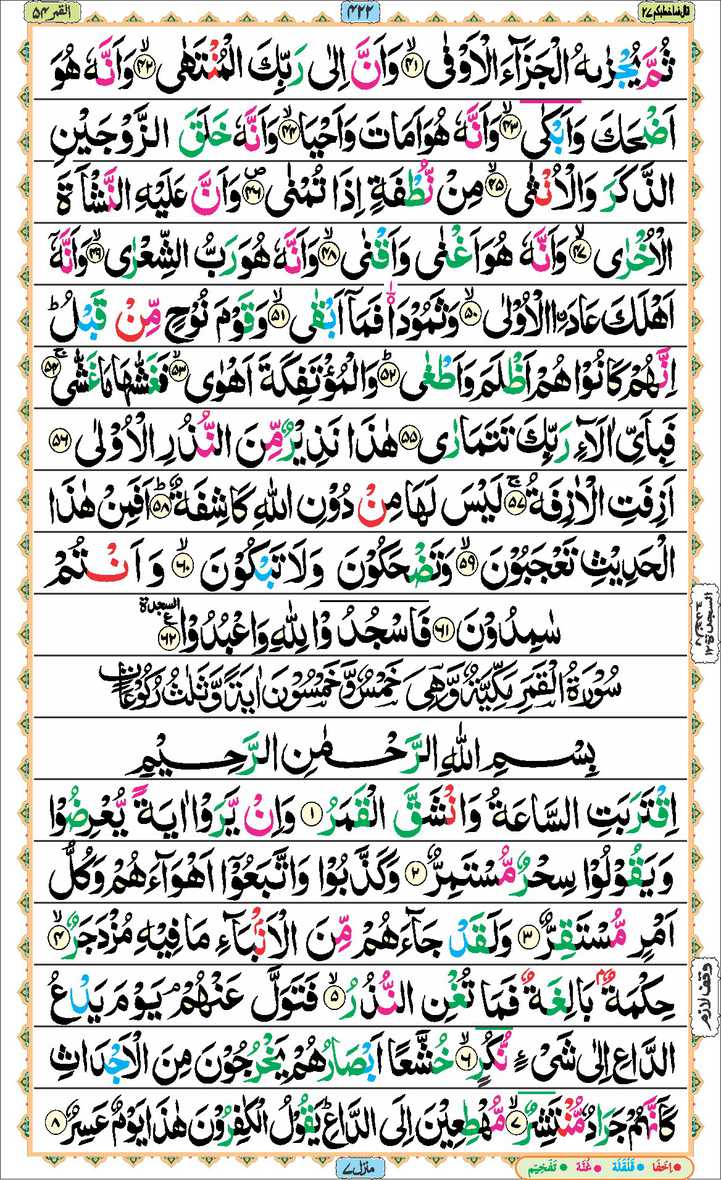 القمر ٥٤
٤٢٢
قال فما خطبكم ٢٧
ثُمَّ يُجْزٰىهُ الْجَزَآءَ الْاَوْفٰى ۙ﴿۴۱﴾ وَاَنَّ اِلٰى رَبِّكَ الْمُنْتَهٰى ۙ﴿۴۲﴾ وَاَنَّهٗ هُوَ
اَضْحَكَ وَاَبْكٰى ۙ﴿۴۳﴾ وَاَنَّهٗ هُوَ اَمَاتَ وَاَحْيَا ۙ﴿۴۴﴾ وَاَنَّهٗ خَلَقَ الزَّوْجَيْنِ
الذَّكَرَ وَالْاُنْثٰى ۙ﴿۴۵﴾ مِنْ نُّطْفَةٍ اِذَا تُمْنٰى ۪﴿۴۶﴾ وَاَنَّ عَلَيْهِ النَّشْاَةَ
الْاُخْرٰى ۙ﴿۴۷﴾ وَاَنَّهٗ هُوَ اَغْنٰى وَاَقْنٰى ۙ﴿۴۸﴾ وَاَنَّهٗ هُوَ رَبُّ الشِّعْرٰى ۙ﴿۴۹﴾ وَاَنَّهٗۤ
اَهْلَكَ عَادَاۨ الْاُوْلٰى ۙ﴿۵۰﴾ وَثَمُوْدَا۠ فَمَاۤ اَبْقٰى ۙ﴿۵۱﴾ وَقَوْمَ نُوْحٍ مِّنْ قَبْلُ ؕ
اِنَّهُمْ كَانُوْا هُمْ اَظْلَمَ وَاَطْغٰى ؕ﴿۵۲﴾ وَالْمُؤْتَفِكَةَ اَهْوٰى ۙ﴿۵۳﴾ فَغَشّٰٮهَا مَا غَشّٰى ۚ﴿۵۴﴾
فَبِاَىِّ اٰلَآءِ رَبِّكَ تَتَمَارٰى ﴿۵۵﴾ هٰذَا نَذِيْرٌ مِّنَ النُّذُرِ الْاُوْلٰى ﴿۵۶﴾
اَزِفَتِ الْاٰزِفَةُ ۚ﴿۵۷﴾ لَيْسَ لَهَا مِنْ دُوْنِ اللّٰهِ كَاشِفَةٌ ؕ﴿۵۸﴾ اَفَمِنْ هٰذَا
الْحَدِيْثِ تَعْجَبُوْنَ ۙ﴿۵۹﴾ وَتَضْحَكُوْنَ وَلَا تَبْكُوْنَ ۙ﴿۶۰﴾ وَاَنْتُمْ
سٰمِدُوْنَ ﴿۶۱﴾ فَاسْجُدُوْا لِلّٰهِ وَاعْبُدُوْا ﴿۶۲﴾ السجدة ع
السجدة ١٢
سُوْرَةُ الْقَمَرِ مَكِّيَّةٌ وَّهِىَ خَمْسٌ وَّخَمْسُوْنَ اٰيَةً وَّثَلٰثُ رُكُوْعَاتٍ
بِسْمِ اللّٰهِ الرَّحْمٰنِ الرَّحِيْمِ
اِقْتَرَبَتِ السَّاعَةُ وَانْشَقَّ الْقَمَرُ ﴿۱﴾ وَاِنْ يَّرَوْا اٰيَةً يُّعْرِضُوْا
وَيَقُوْلُوْا سِحْرٌ مُّسْتَمِرٌّ ﴿۲﴾ وَكَذَّبُوْا وَاتَّبَعُوْۤا اَهْوَآءَهُمْ وَكُلُّ
اَمْرٍ مُّسْتَقِرٌّ ﴿۳﴾ وَلَقَدْ جَآءَهُمْ مِّنَ الْاَنْۢبَآءِ مَا فِيْهِ مُزْدَجَرٌ ۙ﴿۴﴾
حِكْمَةٌ ۢ بَالِغَةٌ فَمَا تُغْنِ النُّذُرُ ۙ﴿۵﴾ فَتَوَلَّ عَنْهُمْ ۘ يَوْمَ يَدْعُ
وقف لازم
الدَّاعِ اِلٰى شَىْءٍ نُّكُرٍ ۙ﴿۶﴾ خُشَّعًا اَبْصَارُهُمْ يَخْرُجُوْنَ مِنَ الْاَجْدَاثِ
كَاَنَّهُمْ جَرَادٌ مُّنْتَشِرٌ ۙ﴿۷﴾ مُّهْطِعِيْنَ اِلَى الدَّاعِ ؕ يَقُوْلُ الْكٰفِرُوْنَ هٰذَا يَوْمٌ عَسِرٌ ﴿۸﴾
منزل ٧
اِخفَا • قَلْقَلَة • غُنَّة • تَفْخِيْم